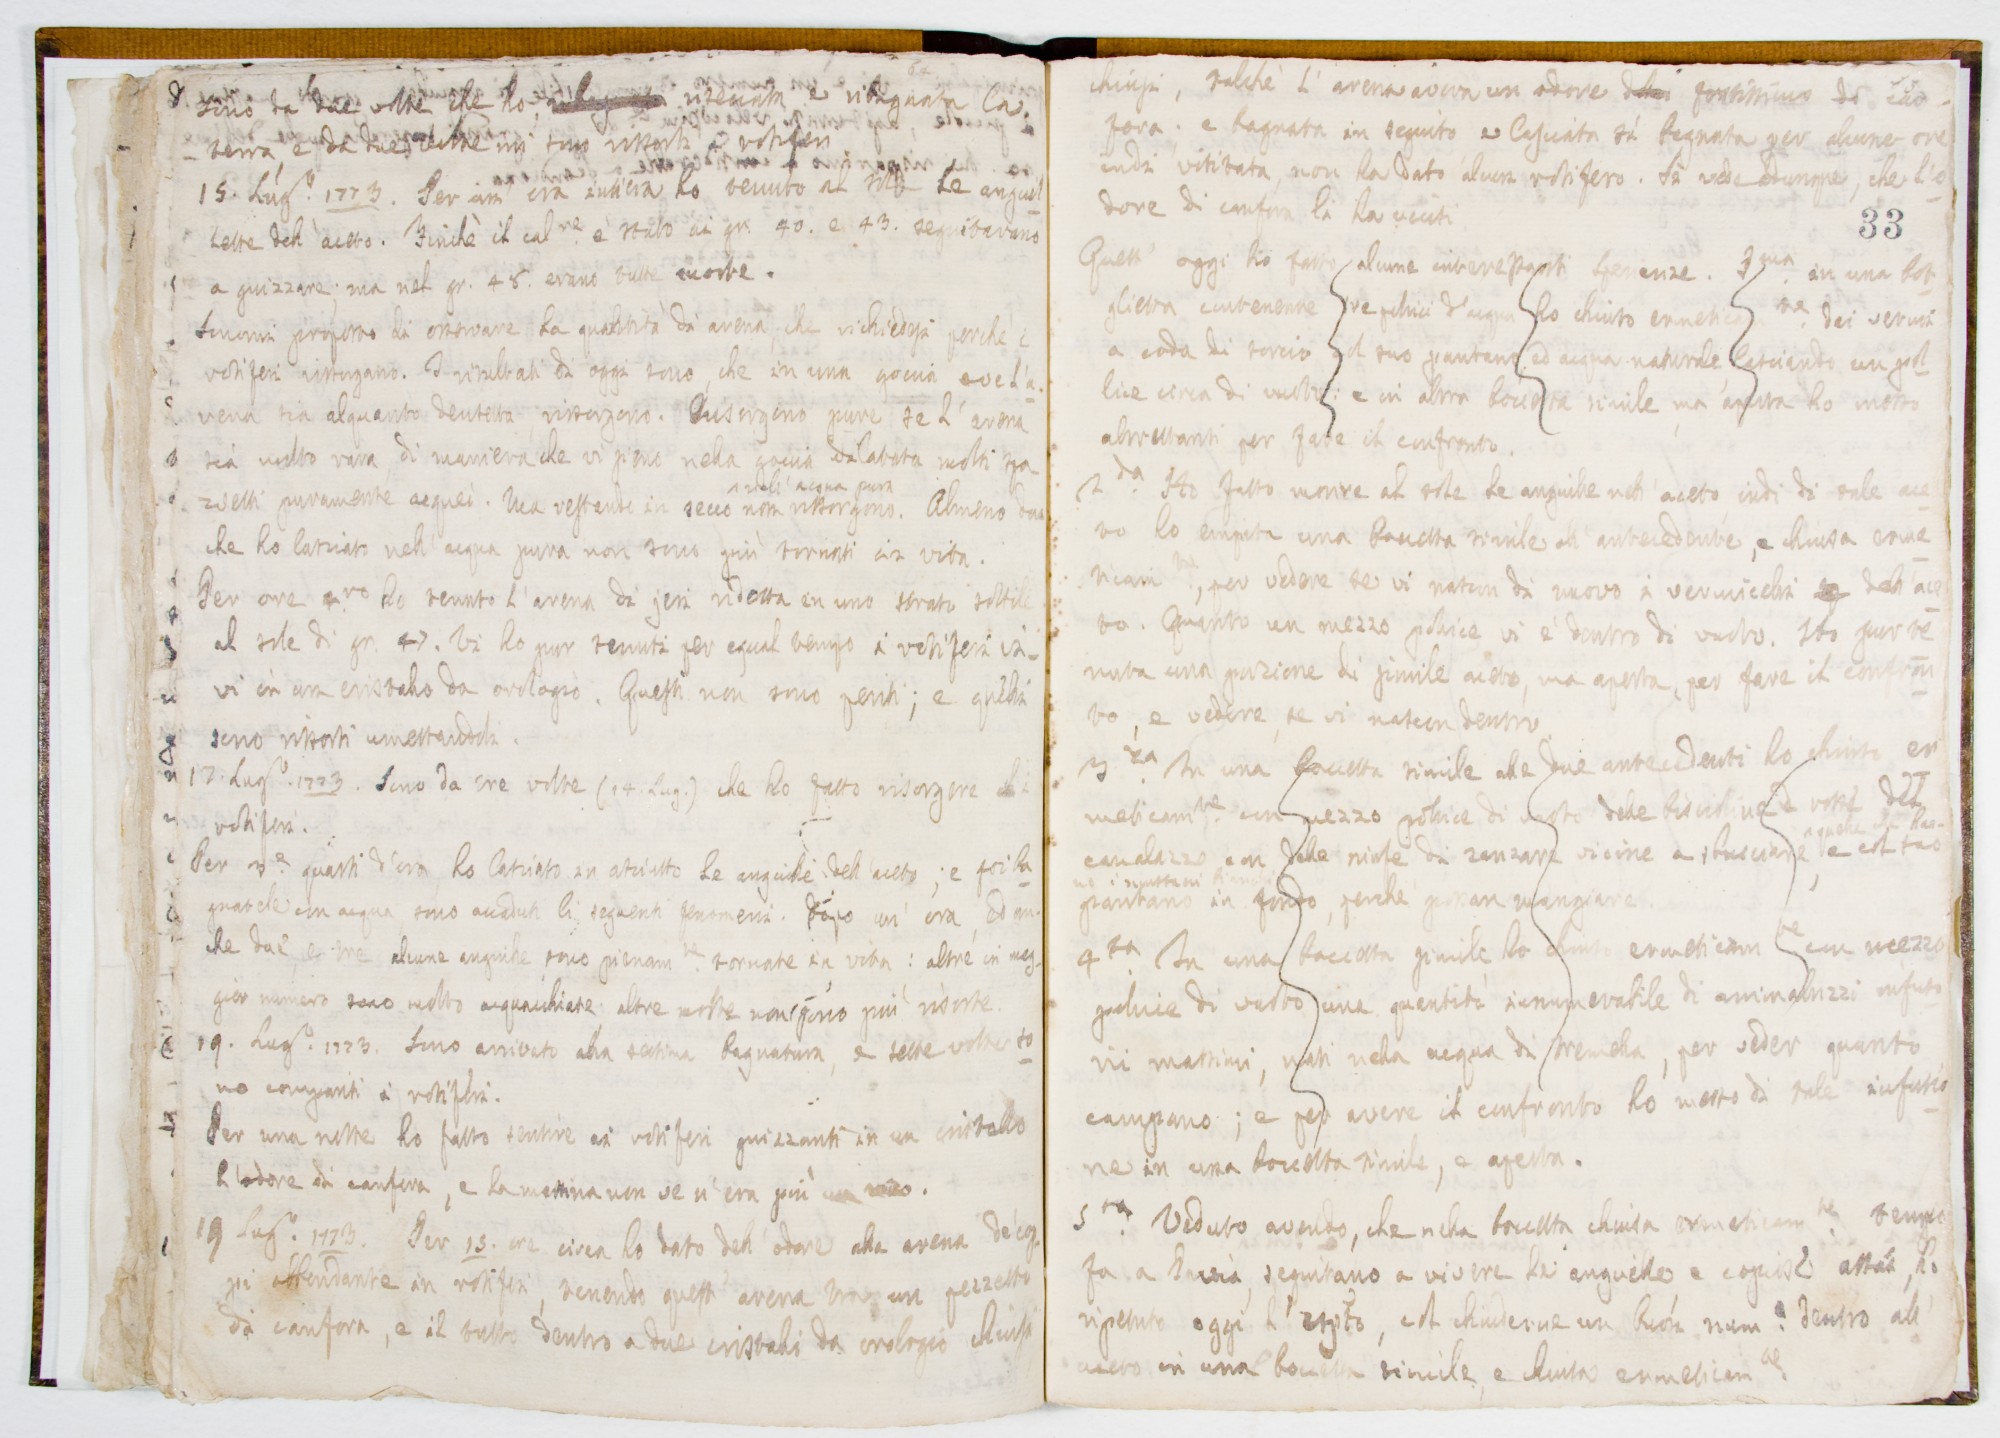 sono da due volte che ho riseccata e ribagnata la
terra, e da due volte mi sono risorti i rotiferi
15. Lug.º 1773. Per un' ora intiera ho tenuto al sole le anguil
lette dell' aceto. Finchè il cal.re è stato ai gr. 40. e 43. seguitavano
a guizzare: ma nel gr. 48. erano tutte morte.
Sonomi proposto di osservare la quantità di arena, che richiedesi perchè i
rotiferi risorgano. I risultati di oggi sono, che in una goccia ove l' a-
rena sia alquanto densetta, risorgono. Risorgono pure se l' arena
sia molto rara, di maniera che vi sieno nella goccia molti spa-
zietti puramente acquei. Ma restando in secco nell' acqua pura non risorgono. Almeno
che ho lasciato nell' acqua pura non sono più tornati in vita.
Per ore ho tenuto l' arena di jeri ridotta in uno strato sottile
al sole di gr. 47. Vi ho pur tenuti per egual tempo i rotiferi vi-
vi in un cristallo da orologio. Questi non sono periti; e quelli
sono risorti umettandoli.
17. Lug.º 1773. Sono da tre volte (14. Lug.) che ho fatto risorgere i
rotiferi.
Per quarti d'ora ho lasciato in asciutto le anguille dell' aceto; e poi ba
gnatele con acqua, sono accaduti li seguenti fenomeni. Dopo un' ora, ed an-
che due, e tre alcune anguille sono pienam.te tornate in vita: altre in mag-
gior numero sono molto acquacchiate: altre molte non sono più risorte.
19. Lug.º 1773. Sono arrivato alla settima bagnatura, e sette volte so
no comparsi i rotiferi.
Per una notte ho fatto sentire ai rotiferi guizzanti in un cristallo
l' odore di canfora, e la mattina non ve n' era più un vivo.
19 Lug.º 1773. Per 15. ore circa ho dato dell' odore alla arena de' cop-
pi abbondante in rotiferi, tenendo quest' arena un pezzetto
di canfora, e il tutto dentro a due cristalli da orologio chiusi
chiusi, talchè l' arena aveva un odore fortissimo di can-
fora: e bagnata in seguito e lasciata sì bagnata per alcune ore
indi visitata, non ha dato alcun rotifero. Si vede adunque, che l'o
dore di canfora li ha uccisi
33
Quest' oggi ho fatto alcune interessanti sperienze. Ima in una bot
glietta contenente tre pollici d' acqua ho chiuso ermeticam.te dei vermi
a coda di sorcio col suo pantano ed acqua naturale lasciando un pol
lice circa di vuoto: e in altra boccetta simile, ma aperta ho messo
altrettanti per fare il confronto.
2.da Ho fatto morire al sole le anguille nell' aceto indi di tale ace
to ho empita una boccetta simile all' antecedente, e chiusa erme
ticam.te, per vedere se vi nascon di nuovo i vermicelli dell' ace
to. Quanto un mezzo pollice vi è dentro di vuoto. Ho pur te
nuta una porzione di simile aceto, ma aperta, per fare il confron
to, e vedere, se vi nascon dentro.
3.za In una boccetta simile alle due antecedenti ho chiuso er
meticam.te con mezzo pollice di vuoto delle biscioline rosse del
canalazzo con delle ninfe di zanzare vicine a sbucciare, e col suo
pantano in fondo, perchè possan mangiare.
4.ta In una boccetta simile ho chiuso ermeticam.te con mezzo
pollice di vuoto una quantità innumerabile di animaluzzi infuso
rii massimi, nati nella acqua di tremella, per veder quanto
campano; e per avere il confronto ho messo di tale infusio
ne in una boccetta simile, e aperta.
5.ta Veduto avendo, che nella boccetta chiusa ermeticam.te tempo
fa a seguitano a vivere le anguille, e copiose assai, ho
ripetuto oggi l' esp.to, col chiuderne un buon num.º dentro all'
aceto in una boccetta simile, e chiusa ermeticam.te